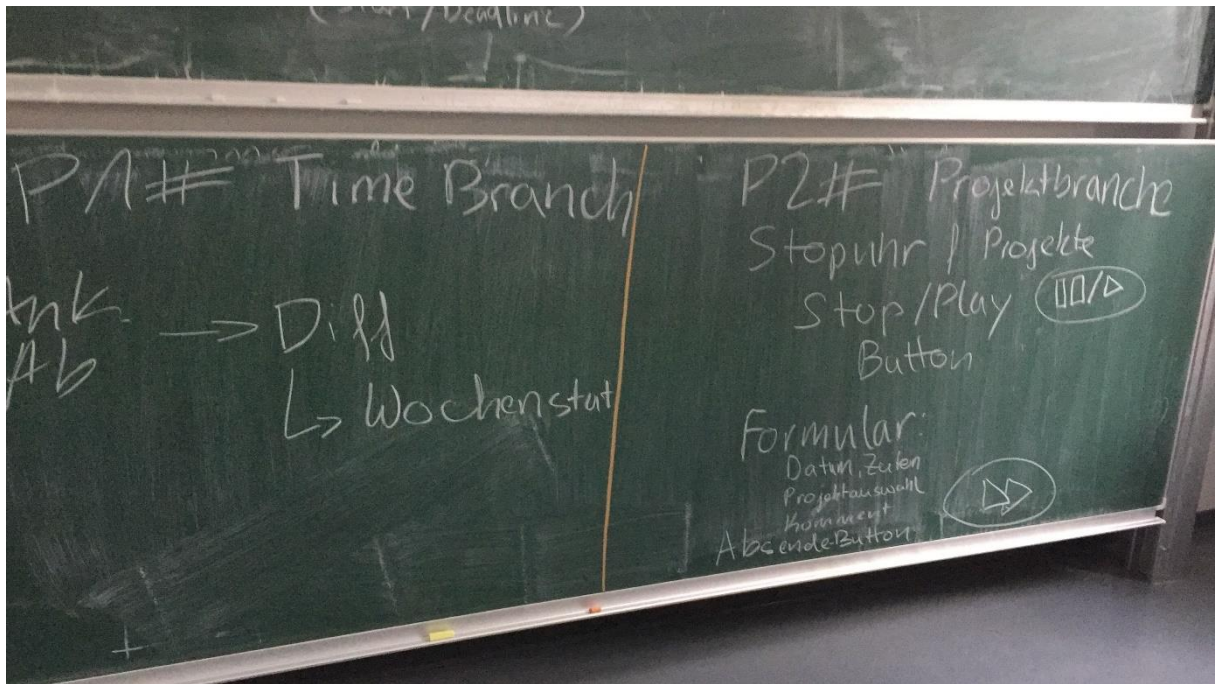 (Start/Deadline)
P1# Time Branch
Ank.
Ab
→ Diff
↳ Wochenstat
P2# Projektbranche
Stopuhr / Projekte
Stop/Play
Button
Formular:
Datum, Zeiten
Projektauswahl
Komment
Absende-Button